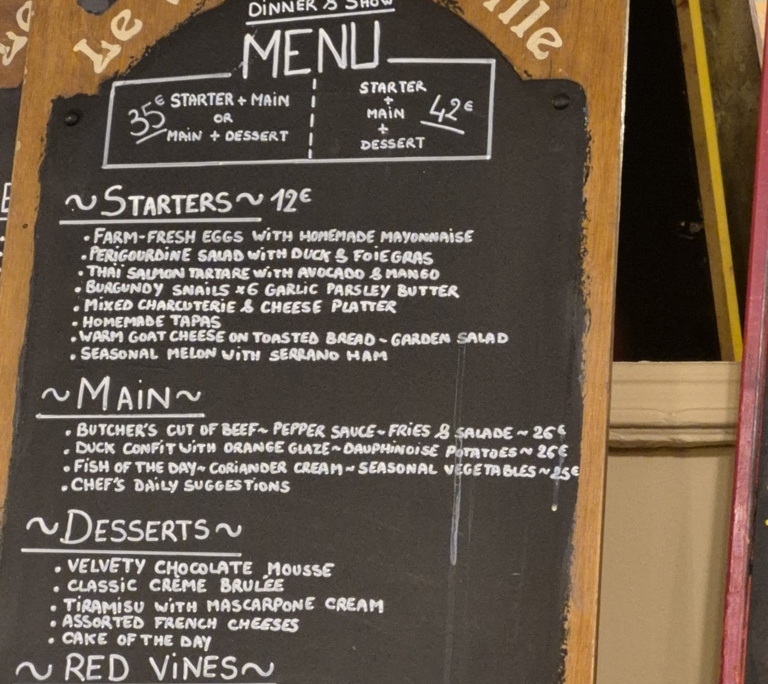 DINNER & SHOW
Le
ille
MENU
35€ STARTER + MAIN
OR
MAIN + DESSERT
STARTER
+
MAIN
+
DESSERT
42€
~STARTERS~ 12€
• FARM-FRESH EGGS WITH HOMEMADE MAYONNAISE
• PERIGOURDINE SALAD WITH DUCK & FOIE GRAS
• THAI SALMON TARTARE WITH AVOCADO & MANGO
• BURGUNDY SNAILS x6 GARLIC PARSLEY BUTTER
• MIXED CHARCUTERIE & CHEESE PLATTER
• HOMEMADE TAPAS
• WARM GOAT CHEESE ON TOASTED BREAD ~ GARDEN SALAD
• SEASONAL MELON WITH SERRANO HAM
~MAIN~
• BUTCHER'S CUT OF BEEF~ PEPPER SAUCE~FRIES & SALADE ~ 26€
• DUCK CONFIT WITH ORANGE GLAZE~DAUPHINOISE POTATOES ~ 26€
• FISH OF THE DAY~ CORIANDER CREAM~SEASONAL VEGETABLES ~25€
• CHEF'S DAILY SUGGESTIONS
~DESSERTS~
• VELVETY CHOCOLATE MOUSSE
• CLASSIC CRÈME BRULÉE
• TIRAMISU WITH MASCARPONE CREAM
• ASSORTED FRENCH CHEESES
• CAKE OF THE DAY
~ RED VINES~